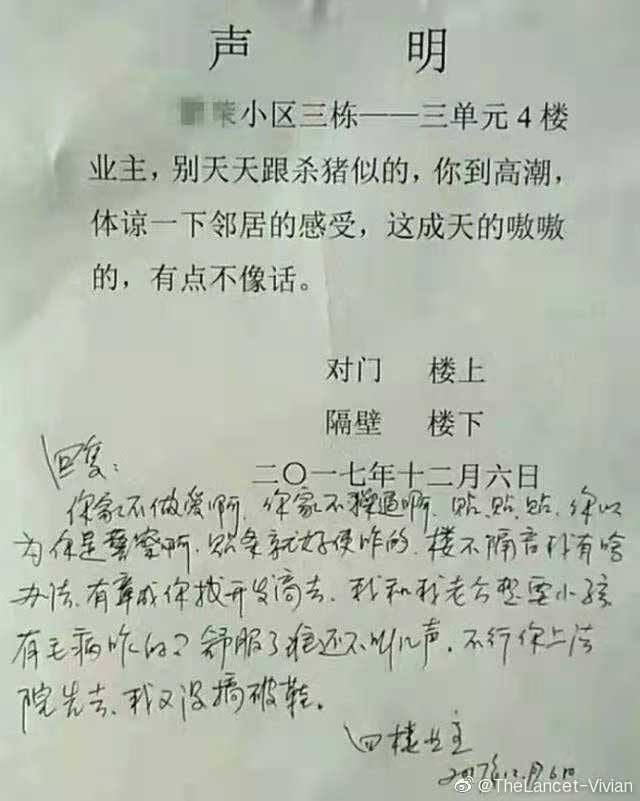 声 明
荣小区三栋——三单元4楼
业主，别天天跟杀猪似的，你到高潮，
体谅一下邻居的感受，这成天的嗷嗷
的，有点不像话。
对门 楼上
隔壁 楼下
二〇一七年十二月六日
回复：
你家不做爱啊，你家不操逼啊，贴贴贴，你以
为你是警察啊，贴条就好使咋的，楼不隔音我有啥
办法，有章程你找开发商去，我和我老公想要小孩
有毛病咋的？舒服了谁还不叫几声，不行你上法
院告去，我又没搞破鞋。
四楼业主
2017年12月6日
@TheLancet-Vivian